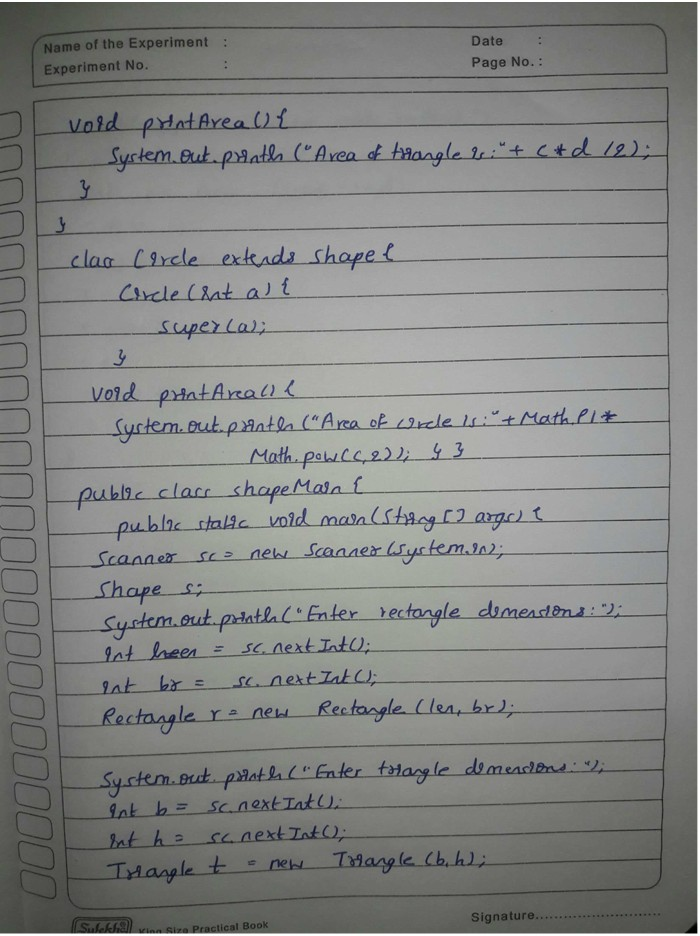 Name of the Experiment :
Date :
Experiment No. :
Page No. :
void printArea(){
System.out.println ("Area of triangle is:"+ c*d /2);
}
}
class Circle extends shape{
Circle (int a) {
super(a);
}
void printArea(){
System.out.println ("Area of circle is:"+Math.PI*
Math.pow(c,2)); } }
public class shapeMain {
public static void main(String [] args) {
Scanner sc = new Scanner(System.in);
Shape s;
System.out.println("Enter rectangle dimensions:");
int len = sc.nextInt();
int br = sc.nextInt();
Rectangle r = new Rectangle (len, br);
System.out.println("Enter triangle dimensions:");
int b = sc.nextInt();
int h = sc.nextInt();
Triangle t = new Triangle (b,h);
Signature............................
Sulekh King Size Practical Book